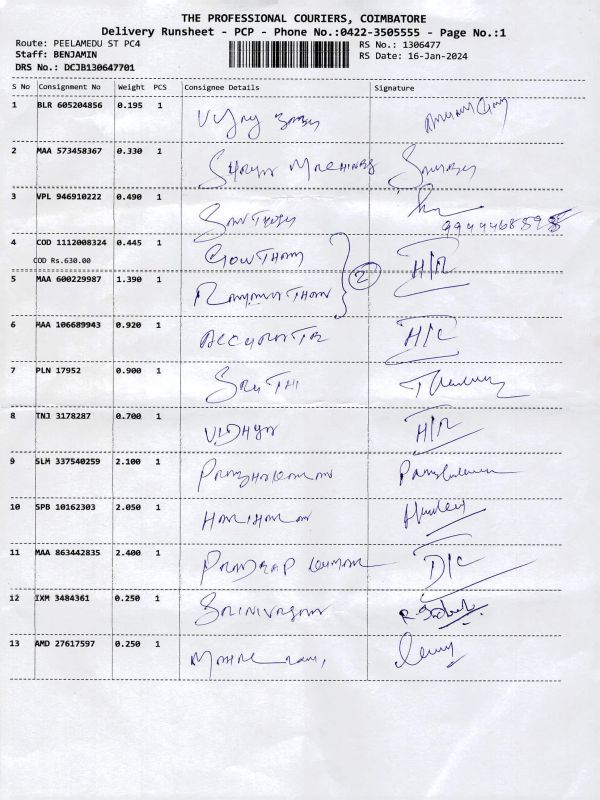 THE PROFESSIONAL COURIERS, COIMBATORE
Delivery Runsheet - PCP - Phone No.:0422-3505555 - Page No.:1
Route: PEELAMEDU ST PC4 RS No.: 1306477
Staff: BENJAMIN RS Date: 16-Jan-2024
DRS No.: DCJB130647701
S No Consignment No Weight PCS Consignee Details Signature
1 BLR 605204856 0.195 1 Vijay
2 MAA 573458367 0.330 1 Machines
3 VPL 946910222 0.490 1 Santhosh
4 COD 1112008324 0.445 1 Gowtham H/R
COD Rs.630.00
2
5 MAA 600229987 1.390 1
6 MAA 106689943 0.920 1 Accurate H/C
7 PLN 17952 0.900 1 Sruthi
8 TNJ 3178287 0.700 1 Vidhya H/R
9 SLM 337540259 2.100 1 Prabhakaran
10 SPB 10162303 2.050 1 Hariharan
11 MAA 863442835 2.400 1 Pradeep Kumar D/C
12 IXM 3484361 0.250 1 Srinivasan
13 AMD 27617597 0.250 1